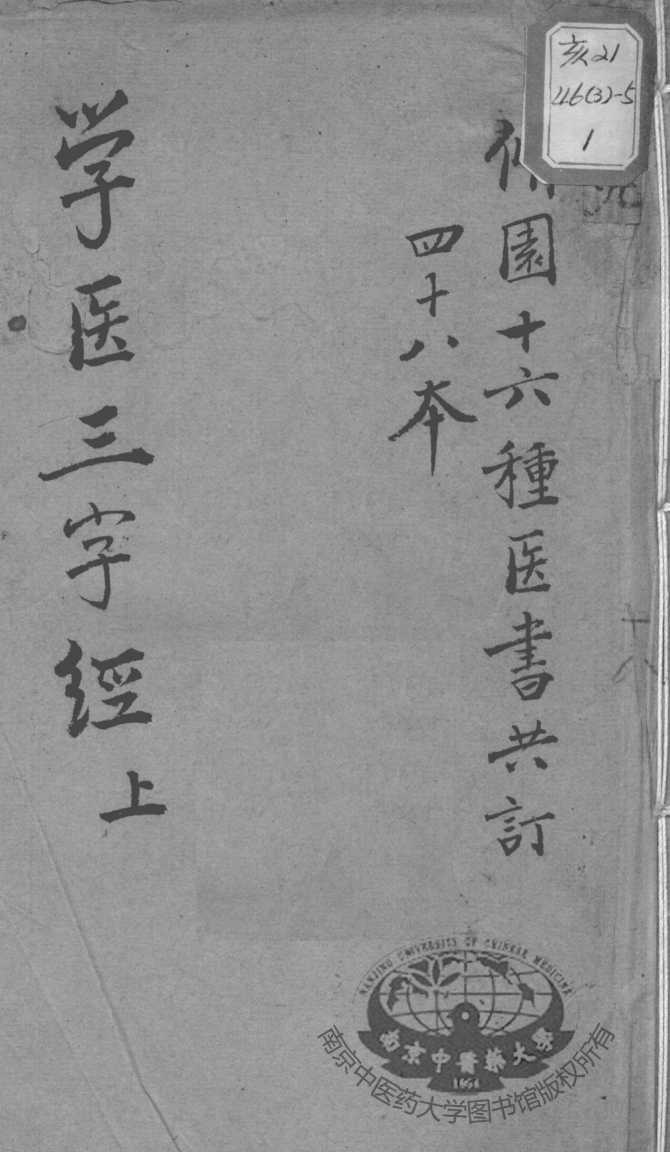 亥21
446(3)-5
1
園十六種医書共訂
四十八本
学医三字經
上
六
NANJING UNIVERSITY OF CHINESE MEDICINE
南京中醫藥大學
1954
南京中医药大学图书馆版权所有